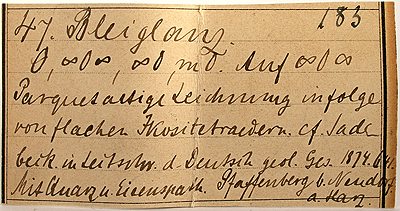 47. Bleiglanz. 183
O, ∞O∞, ∞O, mO. Auf ∞O∞
Parquetartige Zeichnung infolge
von flachen Ikositetraedern. cf. Sade-
beck in Zeitschr. d. Deutsch. geol. Ges. 1874.
Mit Quarz u. Eisenspath. Pfaffenberg b. Neudorf
a. Harz.